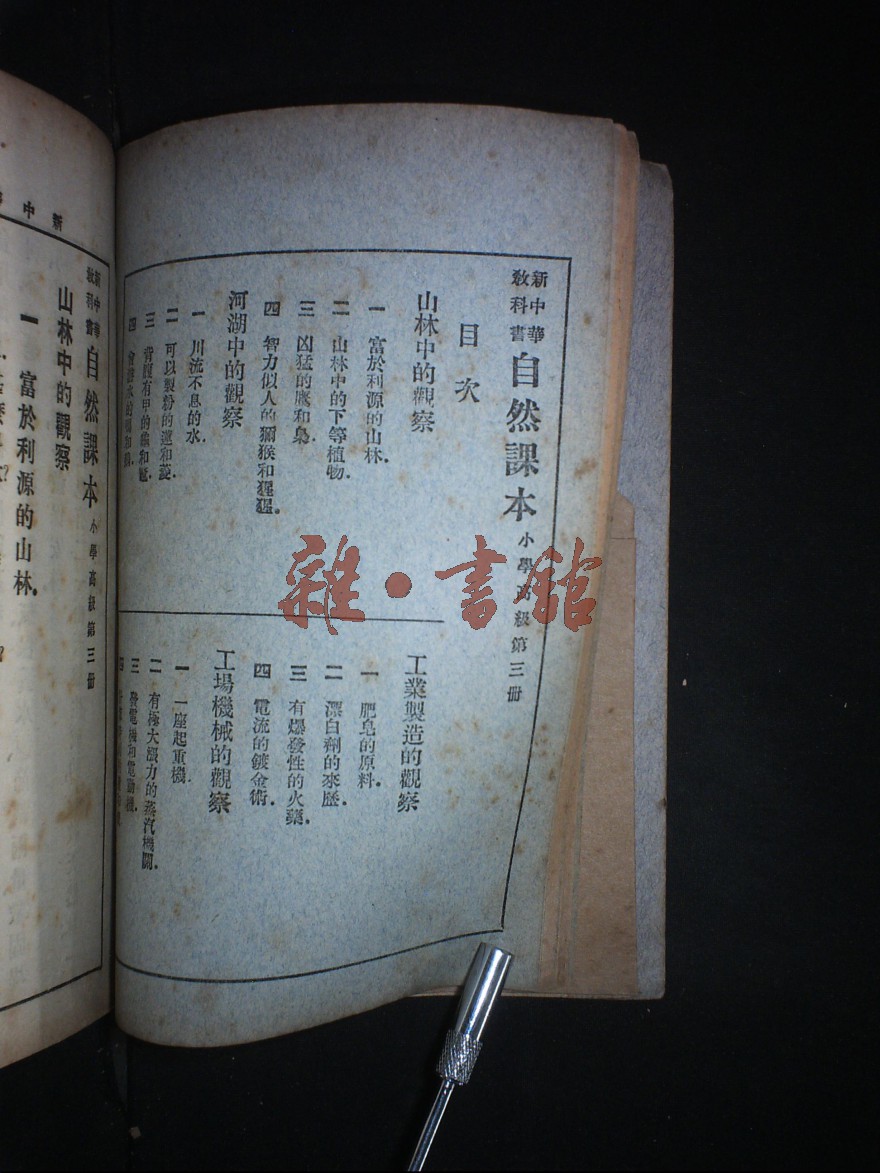 新中華
教科書
自然課本 小學高級第三冊
目次
山林中的觀察
一 富於利源的山林.
二 山林中的下等植物.
三 凶猛的鷹和梟.
四 智力似人的獼猴和猩猩.
河湖中的觀察
一 川流不息的水.
二 可以製粉的蓮和菱.
三 背腹有甲的龜和鼈.
四
工業製造的觀察
一 肥皂的原料.
二 漂白劑的來歷.
三 有爆發性的火藥.
四 電流的鍍金術.
工場機械的觀察
一 一座起重機.
二 有極大漲力的蒸汽機關.
三 發電機和電動機.
四
新中
新中華
教科書
自然課本 小學高級第三冊
山林中的觀察
一 富於利源的山林.
雜·書館